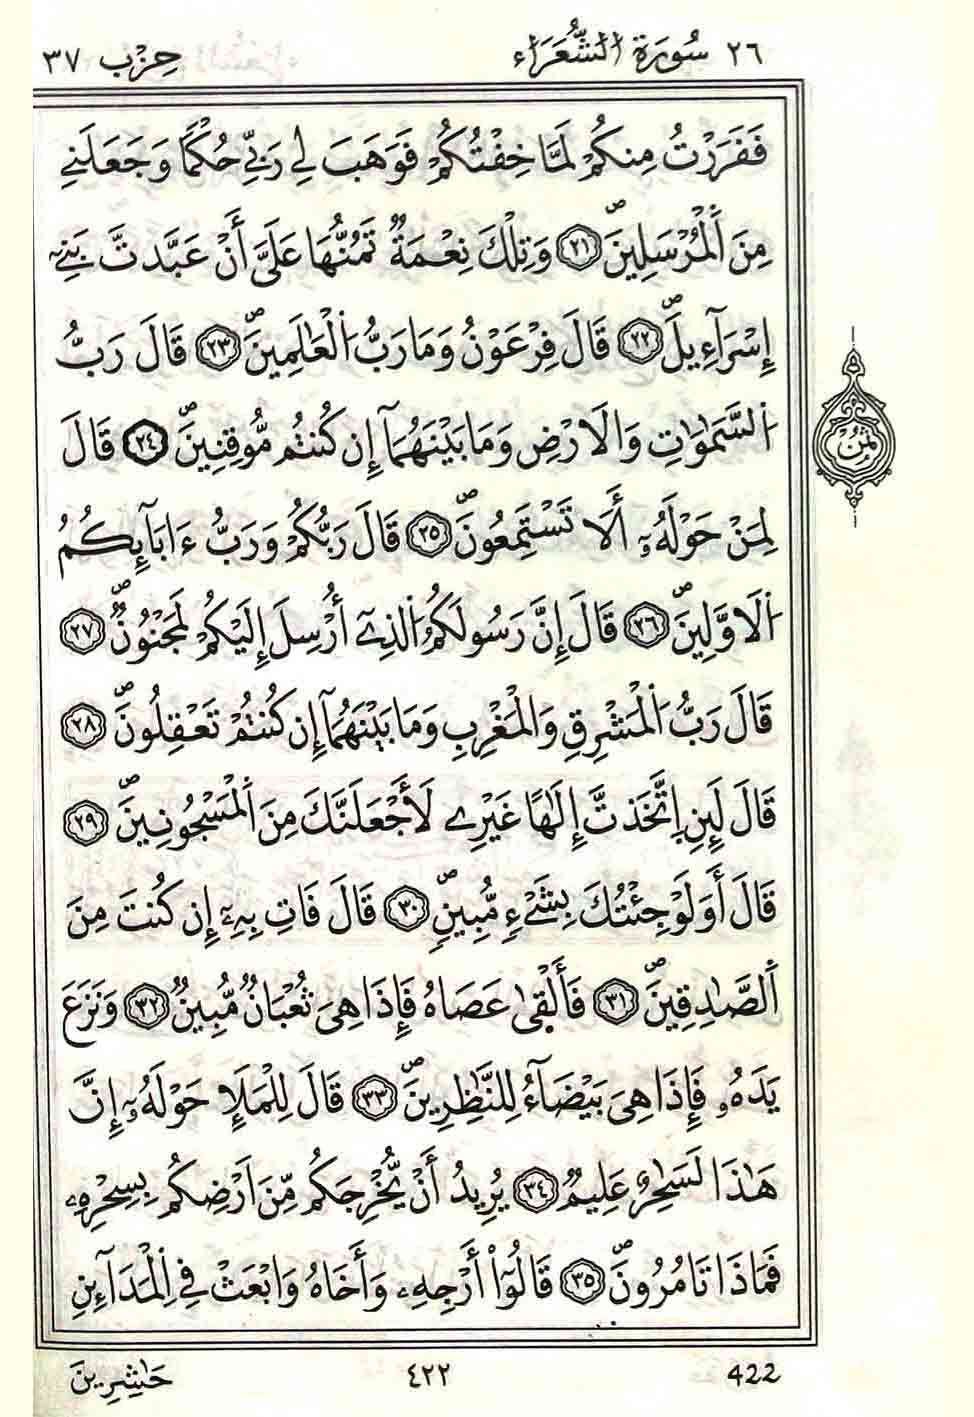 ٢٦ سُورَةُ الشُّعَرَاء
حِزْب ٣٧
فَفَرَرْتُ مِنكُمْ لَمَّا خِفْتُكُمْ فَوَهَبَ لِے رَبِّے حُكْمًا وَجَعَلَنِے
مِنَ اَ۬لْمُرْسَلِينَۖ ٢١ وَتِلْكَ نِعْمَةٌ تَمُنُّهَا عَلَيَّ أَنْ عَبَّدتَّ بَنِےٓ
إِسْرَآءِيلَۖ ٢٢ قَالَ فِرْعَوْنُ وَمَا رَبُّ اُ۬لْعَٰلَمِينَۖ ٢٣ قَالَ رَبُّ
اُ۬لسَّمَٰوَٰتِ وَالَارْضِ وَمَا بَيْنَهُمَآ إِن كُنتُم مُّوقِنِينَۖ ٢٤ قَالَ
لِمَنْ حَوْلَهُۥٓ أَلَا تَسْتَمِعُونَۖ ٢٥ قَالَ رَبُّكُمْ وَرَبُّ ءَابَآئِكُمُ
اُ۬لَاوَّلِينَۖ ٢٦ قَالَ إِنَّ رَسُولَكُمُ اُ۬لذِےٓ أُرْسِلَ إِلَيْكُمْ لَمَجْنُونٌۖ ٢٧
قَالَ رَبُّ اُ۬لْمَشْرِقِ وَالْمَغْرِبِ وَمَا بَيْنَهُمَآ إِن كُنتُمْ تَعْقِلُونَۖ ٢٨
قَالَ لَئِنِ اِتَّخَذتَّ إِلَٰهًا غَيْرِے لَأَجْعَلَنَّكَ مِنَ اَ۬لْمَسْجُونِينَۖ ٢٩
قَالَ أَوَلَوْ جِئْتُكَ بِشَےْءٖ مُّبِينٖۖ ٣٠ قَالَ فَاتِ بِهِۦٓ إِن كُنتَ مِنَ
اَ۬لصَّٰدِقِينَۖ ٣١ فَأَلْقَىٰ عَصَاهُ فَإِذَا هِيَ ثُعْبَانٌ مُّبِينٌ ٣٢ وَنَزَعَ
يَدَهُۥ فَإِذَا هِيَ بَيْضَآءُ لِلنَّٰظِرِينَۖ ٣٣ قَالَ لِلْمَلَإِ حَوْلَهُۥٓ إِنَّ
هَٰذَا لَسَٰحِرٌ عَلِيمٌ ٣٤ يُرِيدُ أَنْ يُّخْرِجَكُم مِّنَ اَرْضِكُم بِسِحْرِهِۦ
فَمَاذَا تَامُرُونَۖ ٣٥ قَالُوٓاْ أَرْجِهِۦ وَأَخَاهُ وَابْعَثْ فِے اِ۬لْمَدَآئِنِ
ثُمُنْ
حَٰشِرِينَ
٤٢٢
422